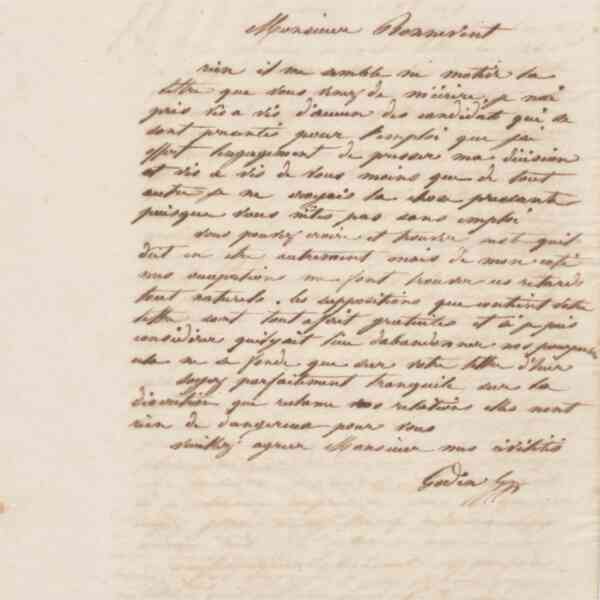 Monsieur Bonnevent
rien il me semble ne motive la
lettre que vous venez de m'écrire, je n'ai
pris vis a vis d'aucun des candidats qui se
sont presentés pour l'emploi que j'ai
offert l'engagement de presser ma décision
et vis a vis de vous moins que de tout
autre je ne voyais la chose pressante
puisque vous n'êtes pas sans emploi
vous pouvez croire et trouver mal qu'il
doit en etre autrement mais de mon coté
mes occupations me font trouver ces retards
tout naturels. les suppositions que contient votre
lettre sont tout afait gratuites et si je puis
considérer qu'il y ait lieu d'abandonner nos pourparlers
cela ne se fonde que sur votre lettre d'hier
soyez parfaitement tranquile sur la
discretion que reclame nos relations elles n'ont
rien de dangereux pour vous
veuillez agreer Monsieur mes civilités
Godin